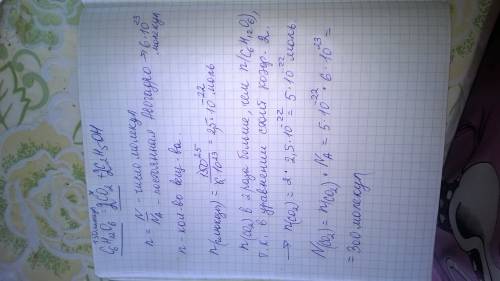 150 молекул x
C₆H₁₂O₆ = 2CO₂ 2C₂H₅OH
n = N/Nₐ - число молекул
Nₐ - постоянная Авогадро → 6·10²³ молекул
n - кол-во вещ-ва
n(глюкоза) = 150²⁵/6·10²³ = 2,5·10⁻²² моль
n(CO₂) в 2 раза больше, чем n(C₆H₁₂O₆),
т.к. в уравнении стоит коэф. 2.
→ n(CO₂) = 2 · 2,5·10⁻²² = 5·10⁻²² моль
N(CO₂) = n(CO₂) · Nₐ = 5·10⁻²² · 6·10²³ =
= 300 молекул